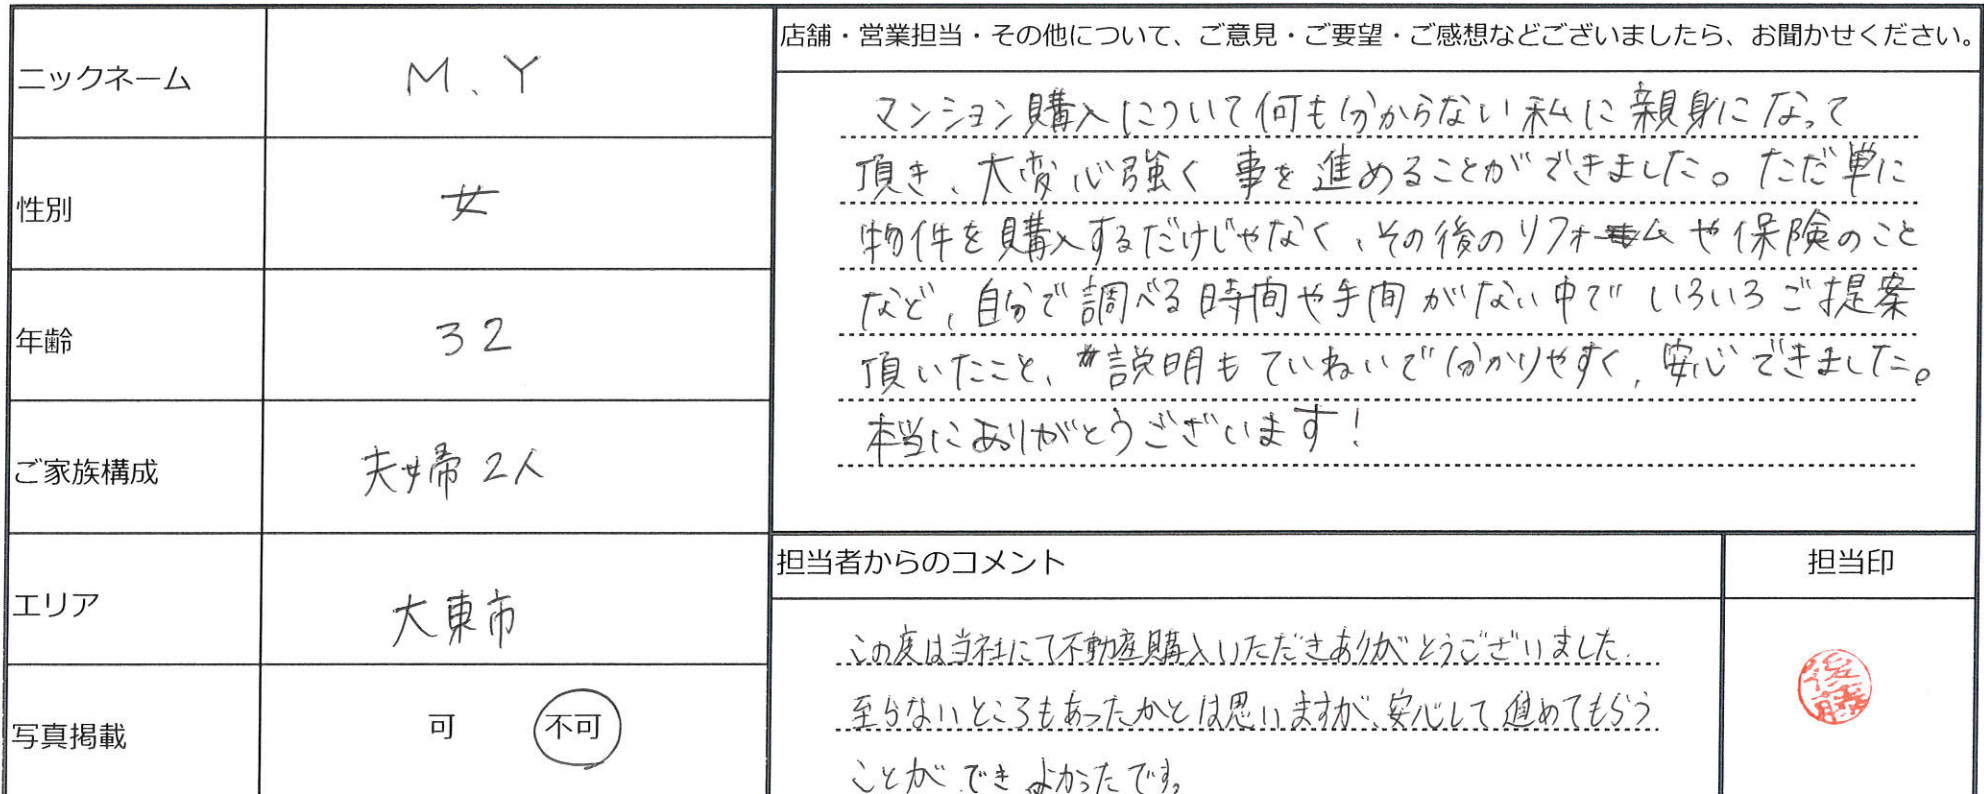 ニックネーム
M、Y
性別
女
年齢
32
ご家族構成
夫婦2人
エリア
大東市
写真掲載
可 不可
店舗・営業担当・その他について、ご意見・ご要望・ご感想などございましたら、お聞かせください。
マンション購入について何も分からない私に親身になって
頂き、大変心強く事を進めることができました。ただ単に
物件を購入するだけじゃなく、その後のリフォームや保険のこと
など、自分で調べる時間や手間がない中でいろいろご提案
頂いたこと、説明もていねいで分かりやすく、安心できました。
本当にありがとうございます!
担当者からのコメント
この度は当社にて不動産購入いただきありがとうございました.
至らないところもあったかとは思いますが、安心して進めてもらう
ことができよかったです。
担当印
後藤